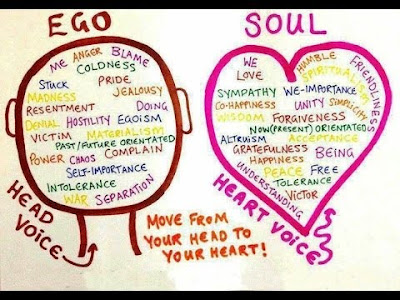 EGO
ME ANGER BLAME
COLDNESS
STUCK PRIDE
MADNESS JEALOUSY
RESENTMENT DOING
DENIAL HOSTILITY EGOISM
VICTIM MATERIALISM
PAST/FUTURE ORIENTATED
POWER CHAOS COMPLAIN
SELF-IMPORTANCE
INTOLERANCE
WAR SEPARATION
HEAD VOICE
MOVE FROM
YOUR HEAD TO
YOUR HEART!
SOUL
WE HUMBLE FRIENDLINESS
LOVE SPIRITUALISM
SYMPATHY WE-IMPORTANCE
CO-HAPPINESS UNITY SIMPLICITY
WISDOM FORGIVENESS
NOW(PRESENT) ORIENTATED
ALTRUISM ACCEPTANCE
GRATEFULNESS BEING
HAPPINESS
PEACE FREE
UNDERSTANDING TOLERANCE
VICTOR
HEART VOICE